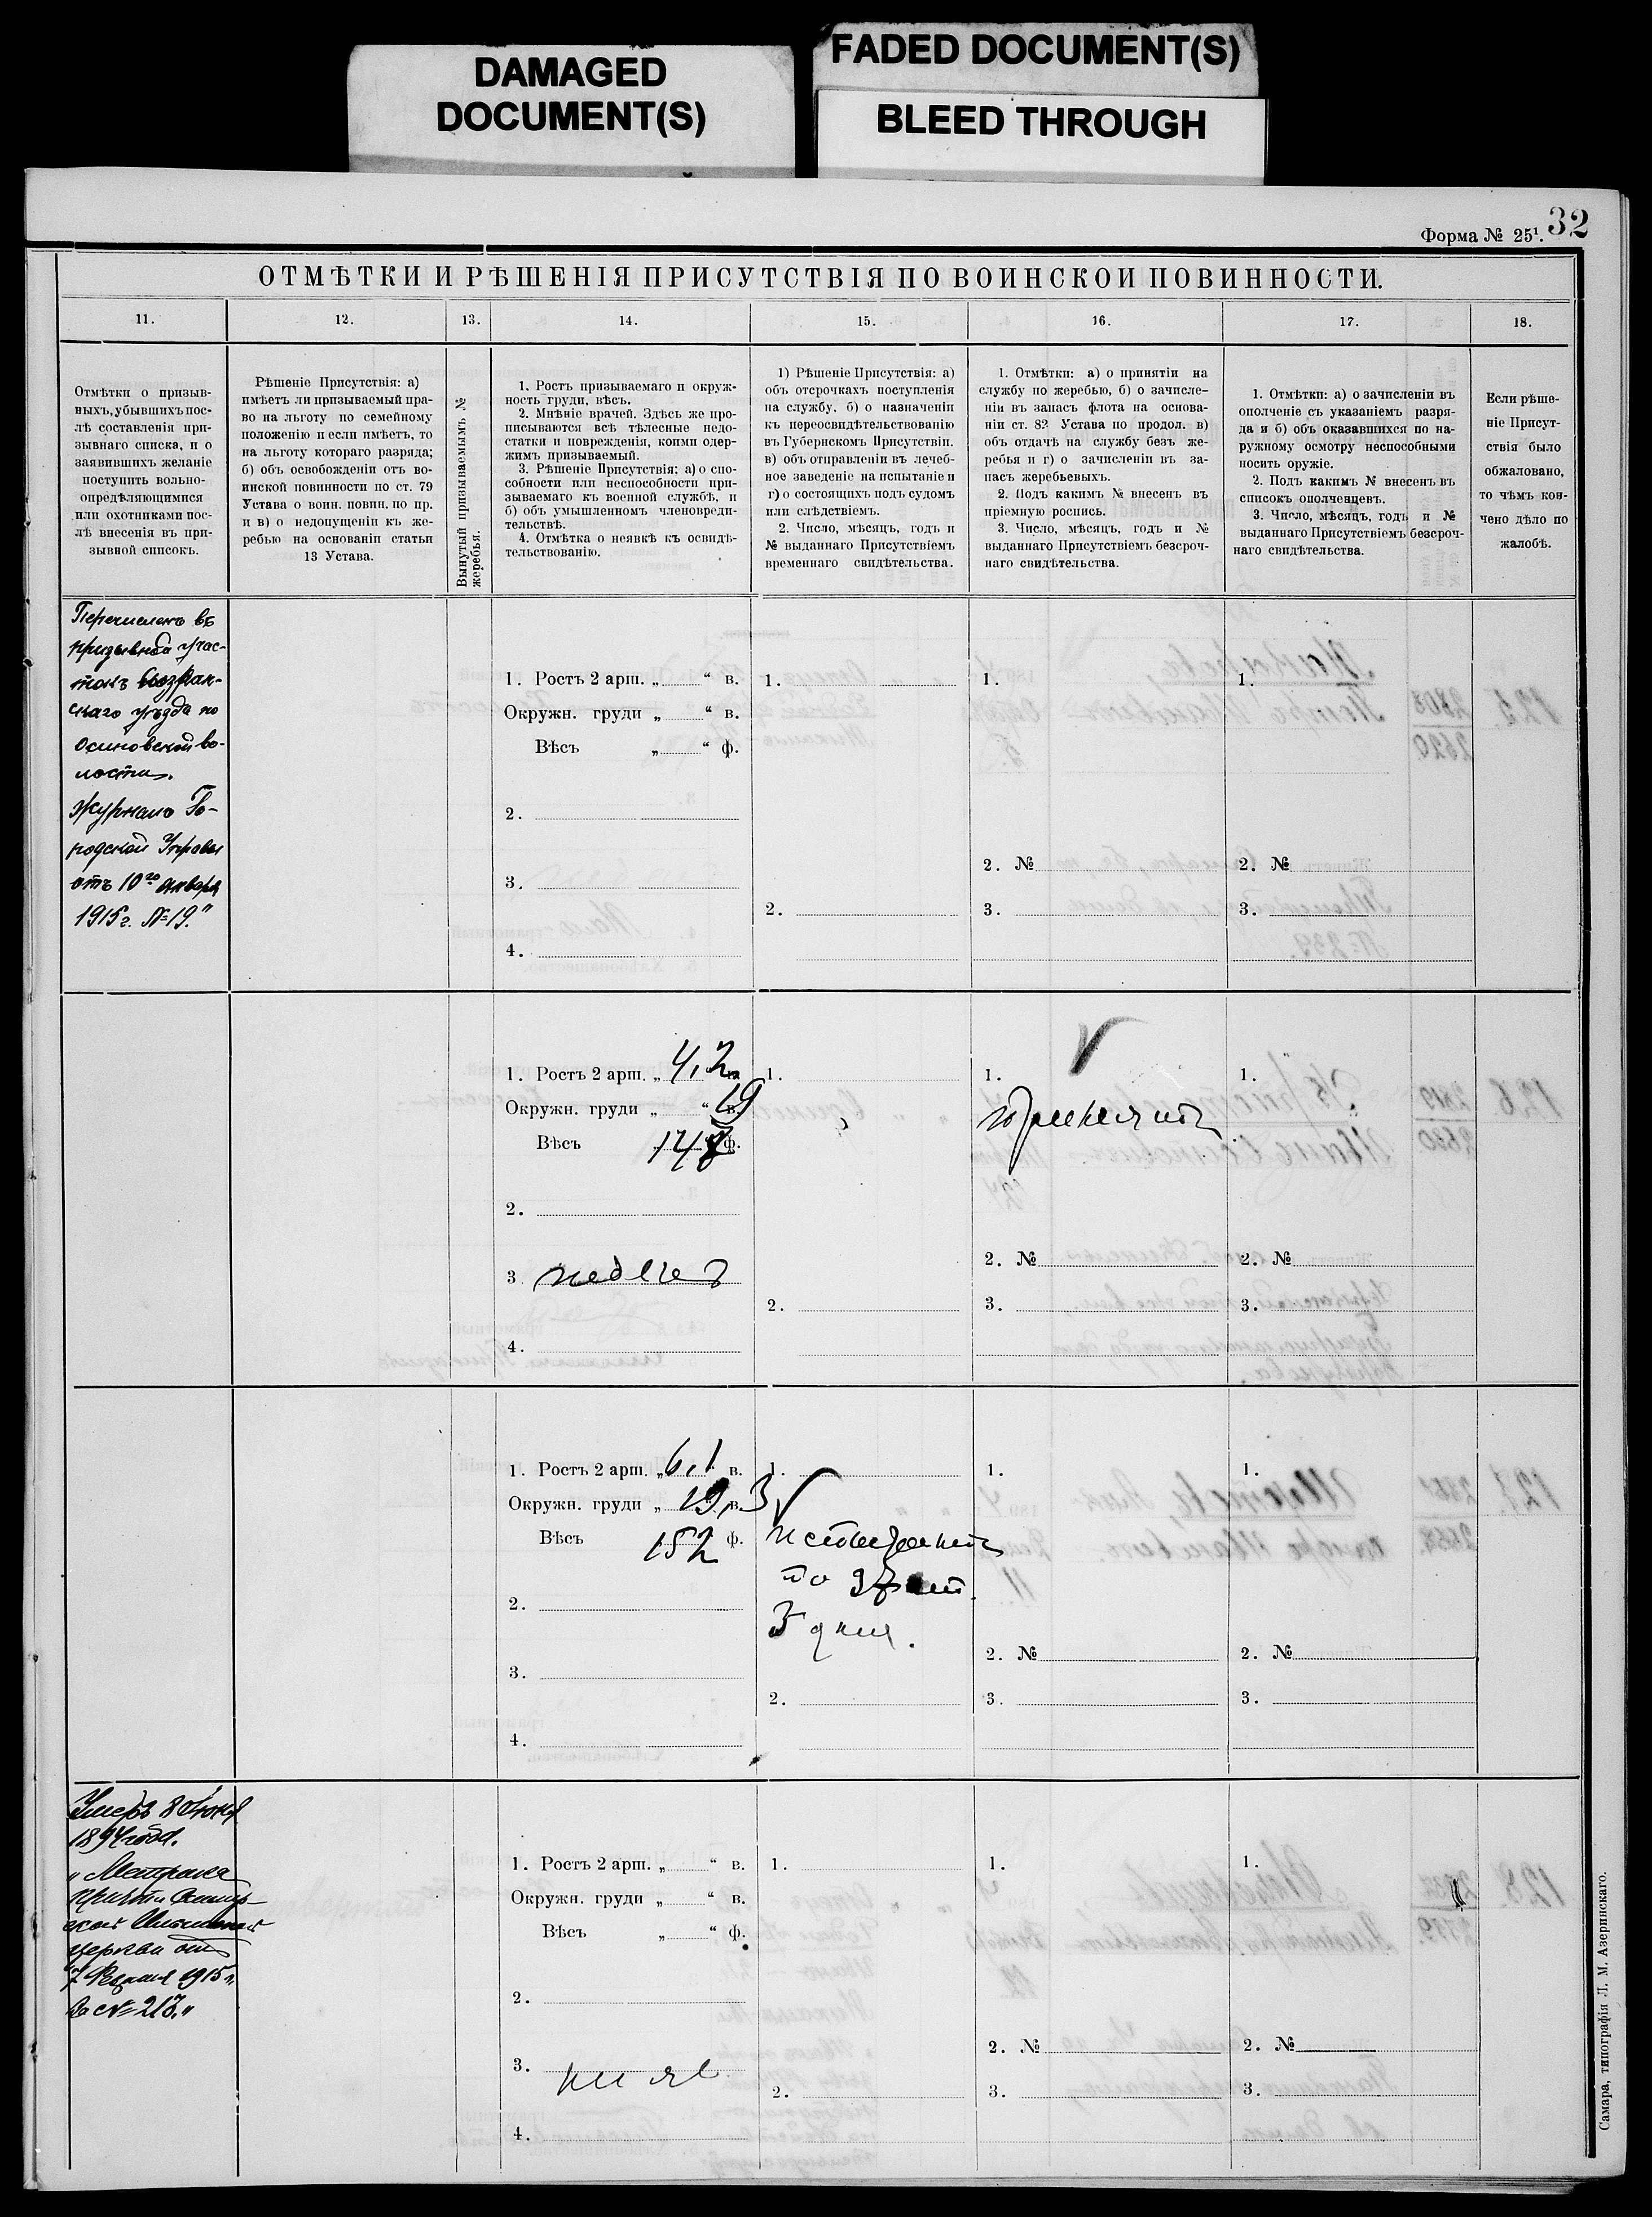 DAMAGED
DOCUMENT(S)
FADED DOCUMENT(S)
BLEED THROUGH
Форма № 25¹.
32
ОТМѢТКИ И РѢШЕНІЯ ПРИСУТСТВІЯ ПО ВОИНСКОИ ПОВИННОСТИ.
11.
12.
13.
14.
15.
16.
17.
18.
Отмѣтки о призыв-
ныхъ, убывшихъ пос-
лѣ составленія при-
зывнаго списка, и о
заявившихъ желаніе
поступить вольно-
опредѣляющимися
или охотниками пос-
лѣ внесенія въ при-
зывной списокъ.
Рѣшеніе Присутствія: а)
имѣетъ ли призываемый пра-
во на льготу по семейному
положенію и если имѣетъ, то
на льготу котораго разряда;
б) объ освобожденіи отъ во-
инской повинности по ст. 79
Устава о воин. повин. по пр.
и в) о недопущеніи къ же-
ребью на основаніи статьи
13 Устава.
Вынутый призываемымъ №
жеребья.
1. Ростъ призываемаго и окруж-
ность груди, вѣсъ.
2. Мнѣніе врачей. Здѣсь же про-
писываются всѣ тѣлесные недо-
статки и поврежденія, коими одер-
жимъ призываемый.
3. Рѣшеніе Присутствія: а) о спо-
собности или неспособности при-
зываемаго къ военной службѣ, и
б) объ умышленномъ членовреди-
тельствѣ.
4. Отмѣтка о неявкѣ къ освидѣ-
тельствованію.
1) Рѣшеніе Присутствія: а)
объ отсрочкахъ поступленія
на службу, б) о назначеніи
къ переосвидѣтельствованію
въ Губернскомъ Присутствіи.
в) объ отправленіи въ лечеб-
ное заведеніе на испытаніе и
г) о состоящихъ подъ судомъ
или слѣдствіемъ.
2. Число, мѣсяцъ, годъ и
№ выданнаго Присутствіемъ
временнаго свидѣтельства.
1. Отмѣтки: а) о принятіи на
службу по жеребью, б) о зачисле-
ніи въ запасъ флота на основа-
ніи ст. 82 Устава по продол. в)
объ отдачѣ на службу безъ же-
ребья и г) о зачисленіи въ за-
пасъ жеребьевыхъ.
2. Подъ какимъ № внесенъ въ
пріемную роспись.
3. Число, мѣсяцъ, годъ и №
выданнаго Присутствіемъ безсроч-
наго свидѣтельства.
1. Отмѣтки: а) о зачисленіи въ
ополченіе съ указаніемъ разря-
да и б) объ оказавшихся по на-
ружному осмотру неспособными
носить оружіе.
2. Подъ какимъ № внесенъ въ
списокъ ополченцевъ.
3. Число, мѣсяцъ, годъ и №
выданнаго Присутствіемъ безсроч-
наго свидѣтельства.
Если рѣше-
ніе Присут-
ствія было
обжаловано,
то чѣмъ кон-
чено дѣло по
жалобѣ.
Перечисленъ въ
призывной учас-
токъ Сызран-
скаго уѣзда по
Осиновской во-
лости.
Журналъ Го-
родской Управы
отъ 10го января
1915 г. № 19."
1. Ростъ 2 арш. „ “ в.
Окружн. груди „ “ в.
Вѣсъ „ “ ф.
2.
3.
4.
1.
2.
1.
2. №
3.
1.
2. №
3.
1. Ростъ 2 арш. „ 4,2 в.
Окружн. груди „ “ 19 в.
Вѣсъ „ 147 ф.
2.
3 годенъ
4.
1.
2.
1.
принятъ
2. №
3.
1.
2. №
3.
1. Ростъ 2 арш. „ 6,1 в.
Окружн. груди „ 19,3 в.
Вѣсъ 152 ф.
2.
3.
4.
1.
2.
1.
2. №
3.
1.
2. №
3.
Умеръ 8 Іюня
1894 года.
„Метрика
причта Самар-
ской
церкви отъ
7 1915 г.
за № 213."
1. Ростъ 2 арш. „ “ в.
Окружн. груди „ “ в.
Вѣсъ „ “ ф.
2.
3.
4.
1.
2.
1.
2. №
3.
1.
2. №
3.
Самара, типографія Л. М. Азеринскаго.